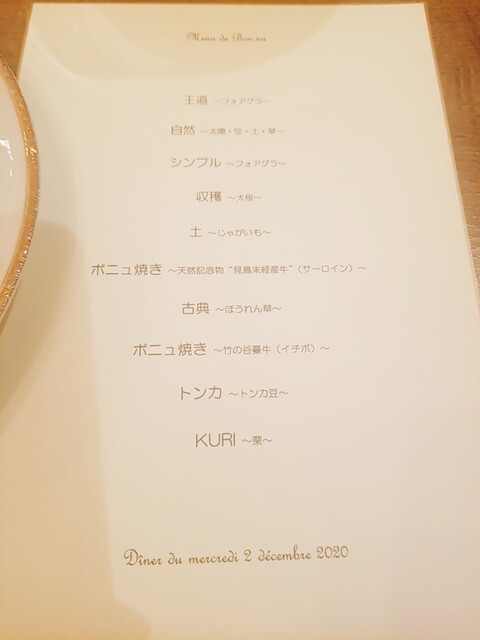 Menu de Bon.nu
王道 〜フォアグラ〜
自然 〜太陽・空・土・草〜
シンプル 〜フォアグラ〜
収穫 〜大根〜
土 〜じゃがいも〜
ボニュ焼き 〜天然記念物“見島未経産牛”（サーロイン）〜
古典 〜ほうれん草〜
ボニュ焼き 〜竹の谷蔓牛（イチボ）〜
トンカ 〜トンカ豆〜
KURI 〜栗〜
Dîner du mercredi 2 décembre 2020